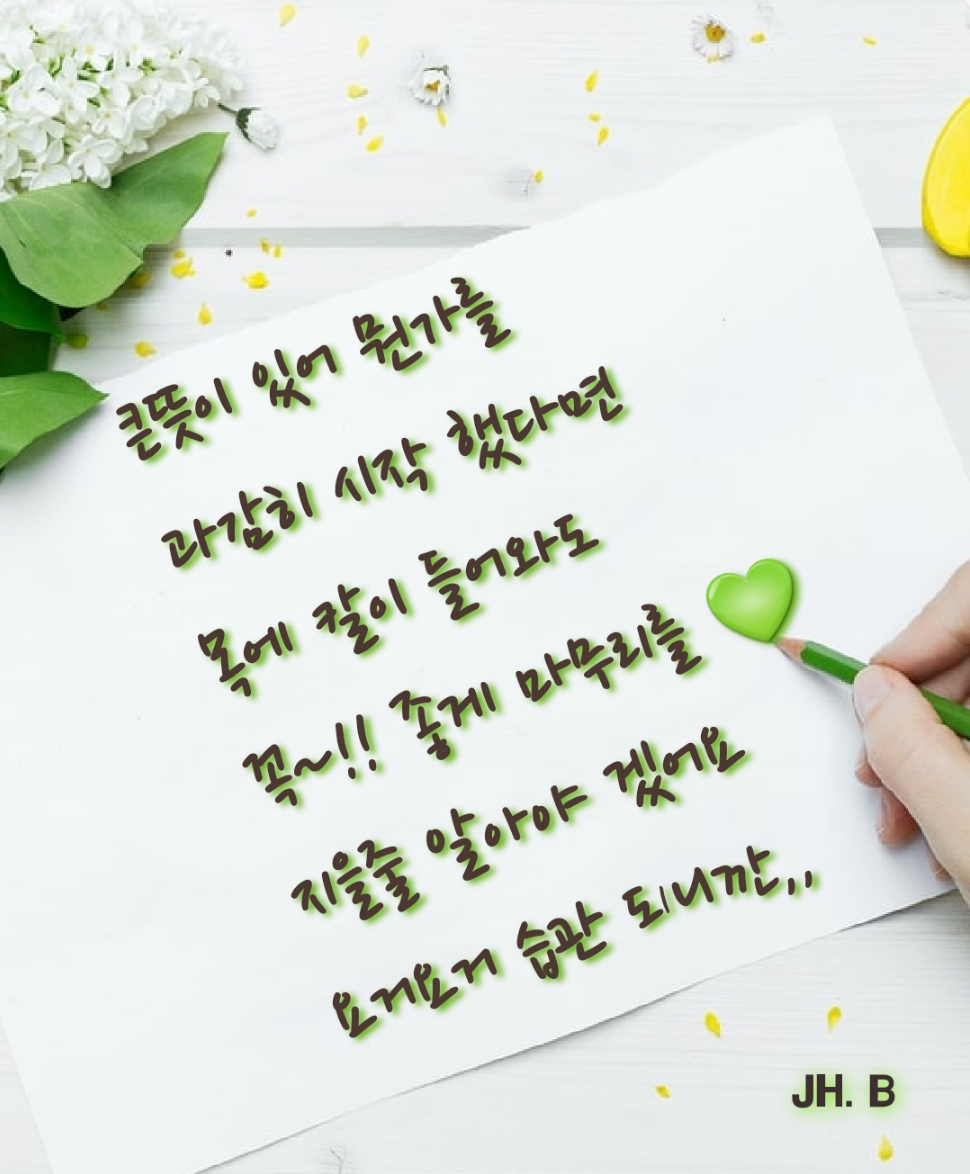 큰뜻이 있어 뭔가를
과감히 시작 했다면
목에 칼이 들어와도
꼭~!! 좋게 마무리를
지을줄 알아야 겠어요
요거요거 습관 되니깐,,
JH. B